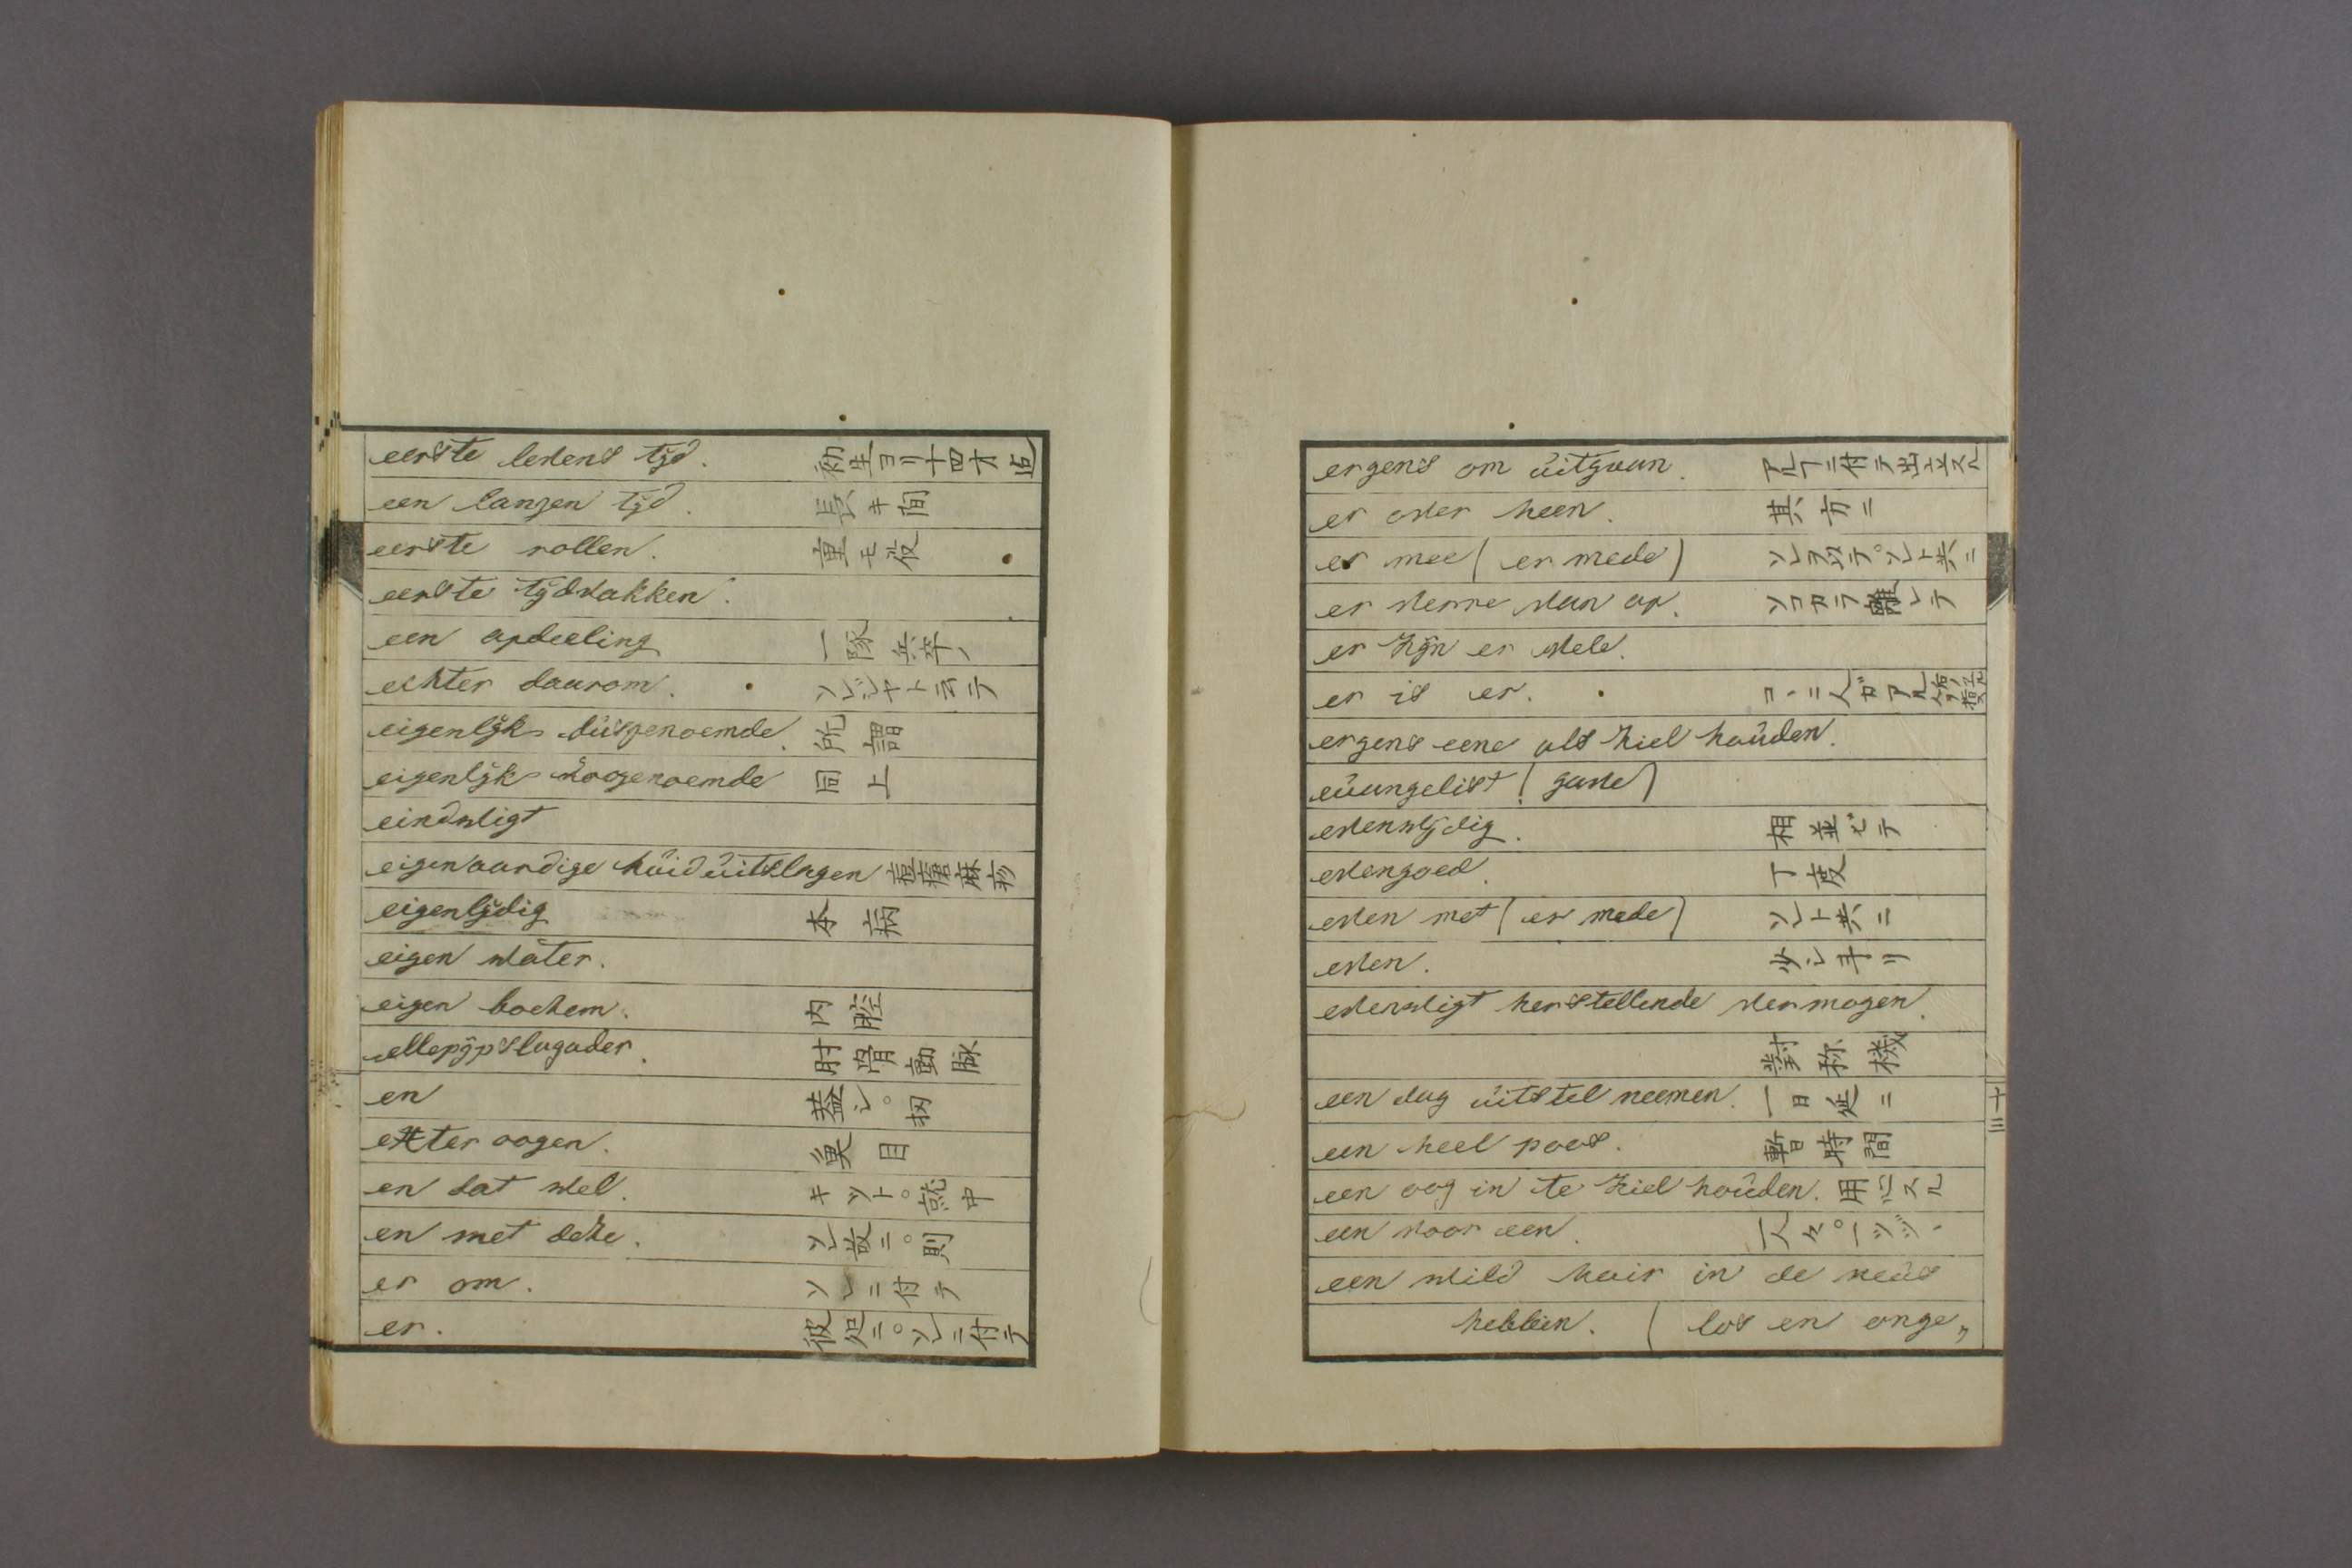 eerste levens tijd. 初生ヨリ十四才迄
een langen tijd. 長キ間
eerste rollen. 重モ役
eerste tijdvakken.
een apdeeling 一隊兵卒ノ
echter daarom. ソレジヤト云テ
eigenlijk dusgenoemde. 所謂
eigenlijk zoogenoemde 同上
eindvligt
eigenaardige huiduitslagen 痘瘡麻疹
eigenlijdig 本病
eigen water.
eigen boezem. 内腔
ellepijpslagader. 肘骨動脉
en 蓋シ。扨
exter oogen. 巣目
en dat wel. キット。就中
en met deze. ソレ故ニ。則
er om. ソレニ付テ
er. 彼処ニ。ソレニ付テ
ergens om uitgaan. アルヿニ付テ出立スル
er over heen. 其方ニ
er mee (er mede) ソレヲ以テ。ソレト共ニ
er verre van op. ソコカラ離レテ
er zijn er vele.
er is er. コヽニ人ガアル
ergens eene als ziel houden.
euangelist (gave)
evenwijdig. 相並ビテ
evengoed. 丁度
even met (er mede) ソレト共ニ
even. 少シキリ
evenwigt herstellende vermogen.
對称機
een dag uitstel neemen. 一日延ニ
een heel poos. 暫時間
een oog in te ziel houden. 用心スル
een voor een. 一人々々。一ツヅヽ
een wild hair in de neus
hebben. (los en onge„
十三